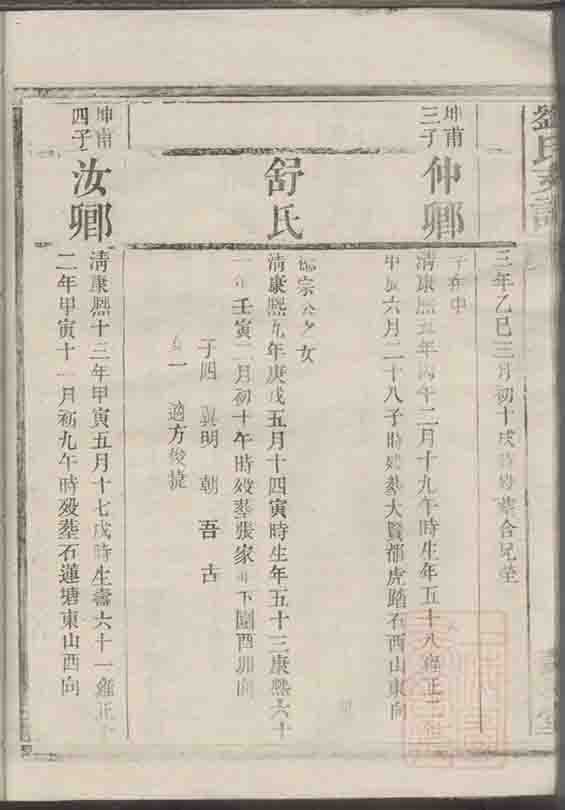 劉氏支譜
三年乙巳三月初十戌時歿葬合兄塋
坤甫
三子
仲卿
字在中
清康熙五年丙午二月十九午時生年五十八雍正二
甲辰六月二十八子時歿葬大賢都虎踏石西山東向
舒氏
宗公之女
清康熙九年庚戌五月十四寅時生年五十三康熙六十
一年壬寅二月初十午時歿葬張家 下園酉 向
子四 異明 朝 吾 古
女一 適方俊捷
坤甫
四子
汝卿
清康熙十三年甲寅五月十七戌時生壽六十一雍正十
二年甲寅十一月初九午時歿塟石蓮塘東山西向